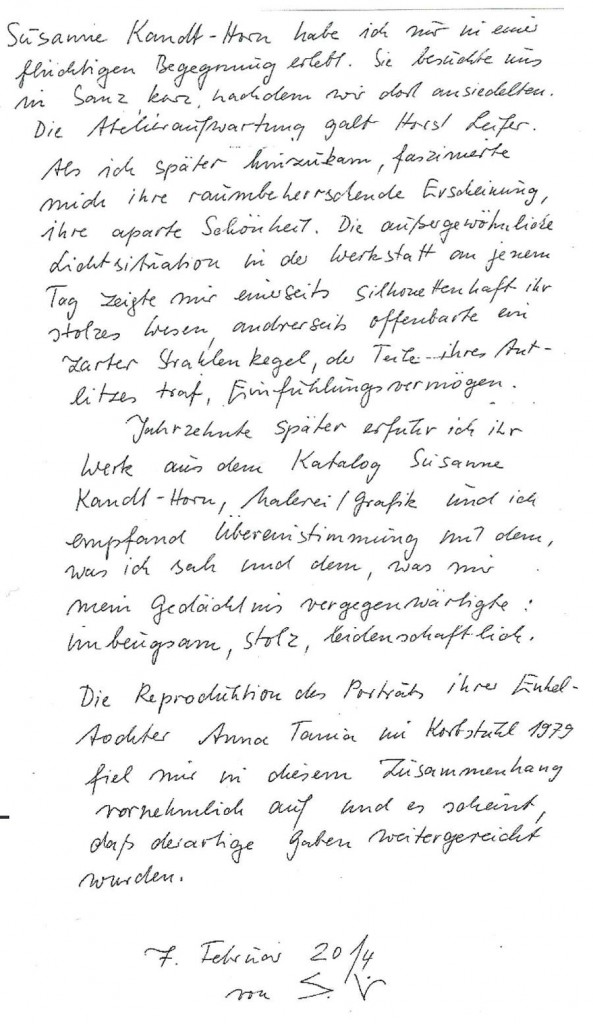 Susanne Kandt-Horn habe ich nur in einer
flüchtigen Begegnung erlebt. Sie besuchte uns
in Sanz, kurz, nachdem wir dort ansiedelten.
Die Atelieraufwartung galt Horst Leifer.
Als ich später hinzukam, faszinierte
mich ihre raumbeherrschende Erscheinung,
ihre aparte Schönheit. Die außergewöhnliche
Lichtsituation in der Werkstatt an jenem
Tag zeigte mir einerseits silhouettenhaft ihr
stolzes Wesen, andrerseits offenbarte ein
zarter Strahlenkegel, der Teile ihres Ant-
litzes traf, Einfühlungsvermögen.
Jahrzehnte später erfuhr ich ihr
Werk aus dem Katalog Susanne
Kandt-Horn, Malerei/Grafik und ich
empfand Übereinstimmung mit dem,
was ich sah und dem, was mir
mein Gedächtnis vergegenwärtigte:
Unbeugsam, stolz, leidenschaftlich.
Die Reproduktion des Porträts ihrer Enkel-
tochter Anna Tania im Korbstuhl 1979
fiel mir in diesem Zusammenhang
vornehmlich auf und es scheint,
daß derartige Gaben weitergereicht
wurden.
7. Februar 2014
von S.